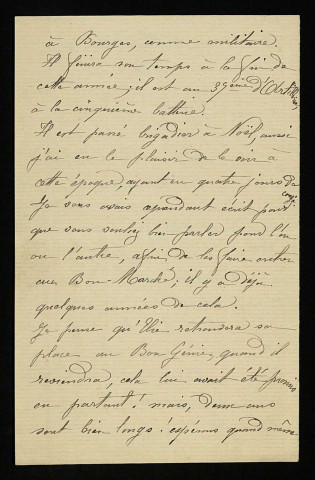 à Bourges, comme militaire.
Il finira son temps à la fin de
cette année; il est au 37ème d'Artillerie,
à la cinquième batterie.
Il est passé brigadier à Noël, aussi
j'ai eu le plaisir de le voir à
cette époque, ayant eu quatre jours de congé.
Je vous avais cependant écrit pour
que vous vouliez bien parler pour l'un
ou l'autre, afin de les faire entrer
au Bon-Marché; il y a déjà
quelques années de cela.
Je pense qu'Elie retrouvera sa
place au Bon Génie, quand il
reviendra, cela lui avait été promis
en partant! mais, deux ans
sont bien longs. espérons quand même